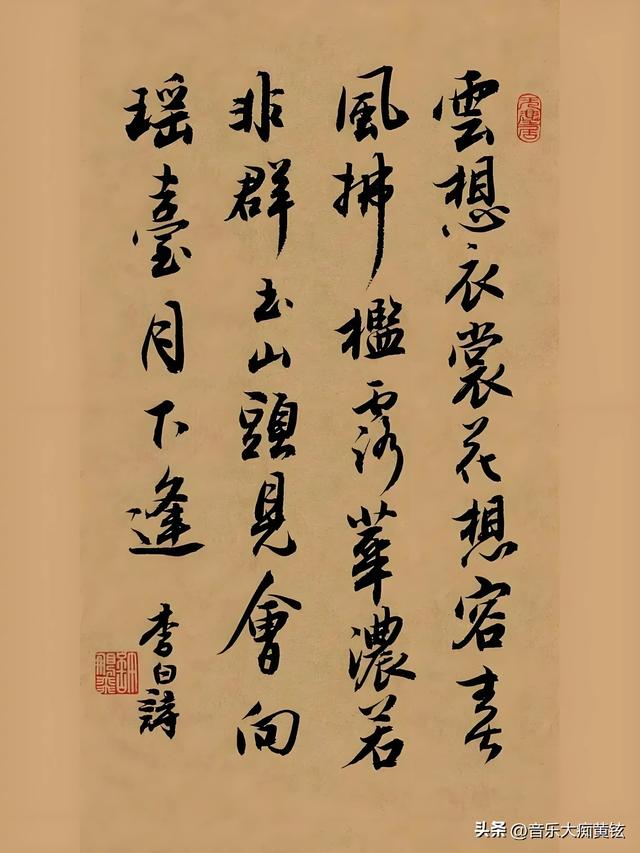 雲想衣裳花想容春
風拂檻露華濃若
非群玉山頭見會向
瑶臺月下逢
李白詩
头条 @音乐大痴黄铉